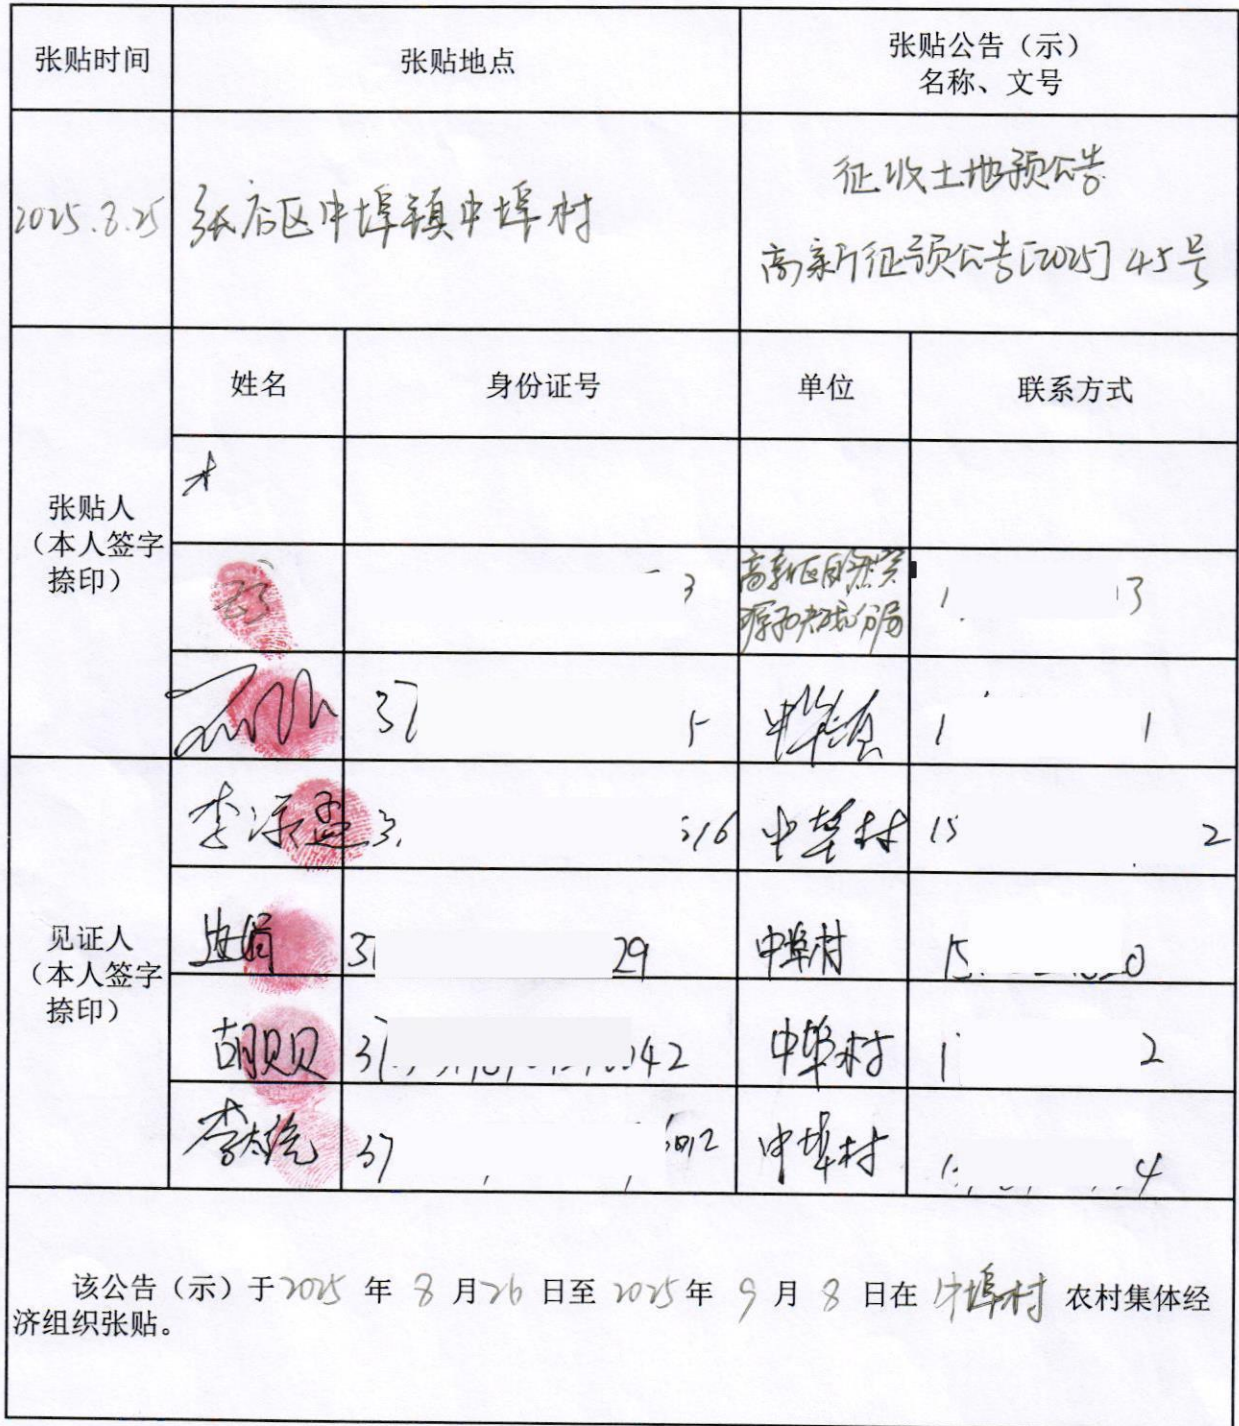 张贴时间
张贴地点
张贴公告（示）
名称、文号
2025.8.25
张店区中埠镇中埠村
征收土地预公告
高新征预公告[2025]45号
姓名
身份证号
单位
联系方式
张贴人
（本人签字
捺印）
3
高新区自然资
源和规划分局
1 13
37 5
中埠镇
1 1
见证人
（本人签字
捺印）
李 3 16
中埠村
15 2
37 29
中埠村
15 0
胡贝贝
37 42
中埠村
1 2
李 37 012
中埠村
1 4
该公告（示）于2025 年 8 月26 日至 2025年 9 月 8 日在 中埠村 农村集体经
济组织张贴。